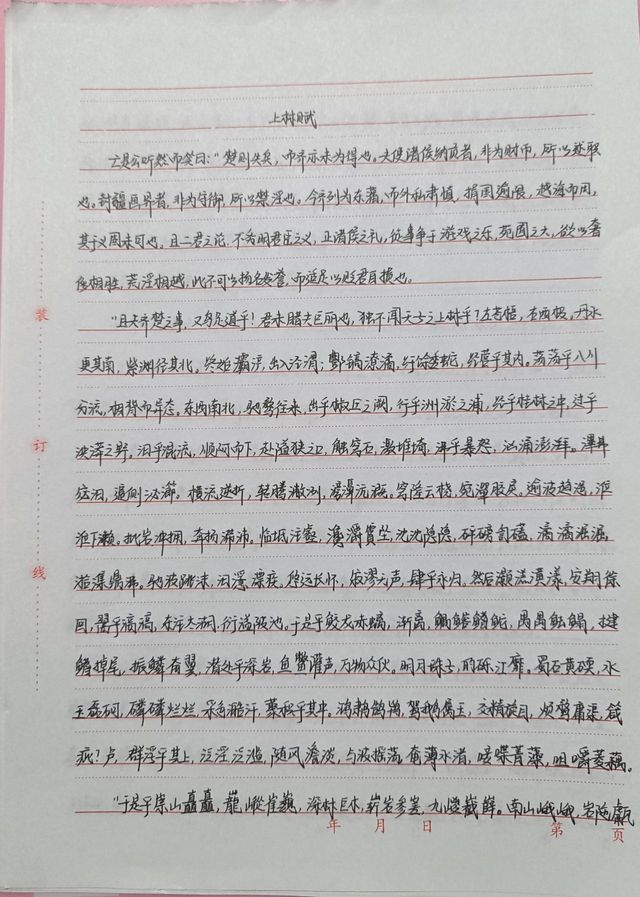 上林赋
亡是公听然而笑曰："楚则失矣，而齐亦未为得也。夫使诸侯纳贡者，非为财币，所以述职
也。封疆画界者，非为守御，所以禁淫也。今齐列为东藩，而外私肃慎，捐国逾限，越海而田，
其于义固未可也，且二君之论，不务明君臣之义，正诸侯之礼，徒事争于游戏之乐，苑囿之大，欲以奢
侈相胜，荒淫相越，此不可以扬名发誉，而适足以贬君自损也。
"且夫齐楚之事，又乌足道乎！君未睹夫巨丽也，独不闻天子之上林乎？左苍梧，右西极，丹水
更其南，紫渊径其北。终始灞浐，出入泾渭；酆镐潦潏，纡馀委蛇，经营乎其内。荡荡乎八川
分流，相背而异态。东西南北，驰骛往来，出乎椒丘之阙，行乎洲淤之浦，经乎桂林之中，过乎
泱漭之野。汩乎混流，顺阿而下，赴隘狭之口，触穹石，激堆埼，沸乎暴怒，汹涌澎湃。滭弗
宓汩，逼侧泌瀄。横流逆折，转腾潎洌，滂濞沆溉。穹隆云桡，宛潬胶戾，逾波趋浥，涖
涖下濑。批岩冲拥，奔扬滞沛。临坻注壑，瀺灂霣坠，沈沈隐隐，砰磅訇磕，潏潏淈淈，
湁潗鼎沸。驰波跳沫，汩漂疾。悠远长怀，寂漻无声，肆乎永归。然后灏溔潢漾，安翔徐
回，翯乎滈滈，东注太湖，衍溢陂池。于是乎蛟龙赤螭，渐离，鰅鳙鰬魠，禺禺魼鳎，揵
鳍掉尾，振鳞奋翼，潜处乎深岩，鱼鳖讙声，万物众伙。明月珠子，的砾江靡。蜀石黄碝，水
玉磊砢，磷磷烂烂，采色澔汗，藂积乎其中。鸿鹔鹄鸨，鴐鹅属玉，交精旋目，烦鹜庸渠，
？卢，群浮乎其上，泛淫泛滥，随风澹淡，与波摇荡，奄薄水渚，唼喋菁藻，咀嚼菱藕。
"于是乎崇山矗矗，巃嵷崔巍，深林巨木，崭岩参差，九嵕嶻嶭。南山峨峨，岩陁甗
装
订
线
年 月 日 第 页